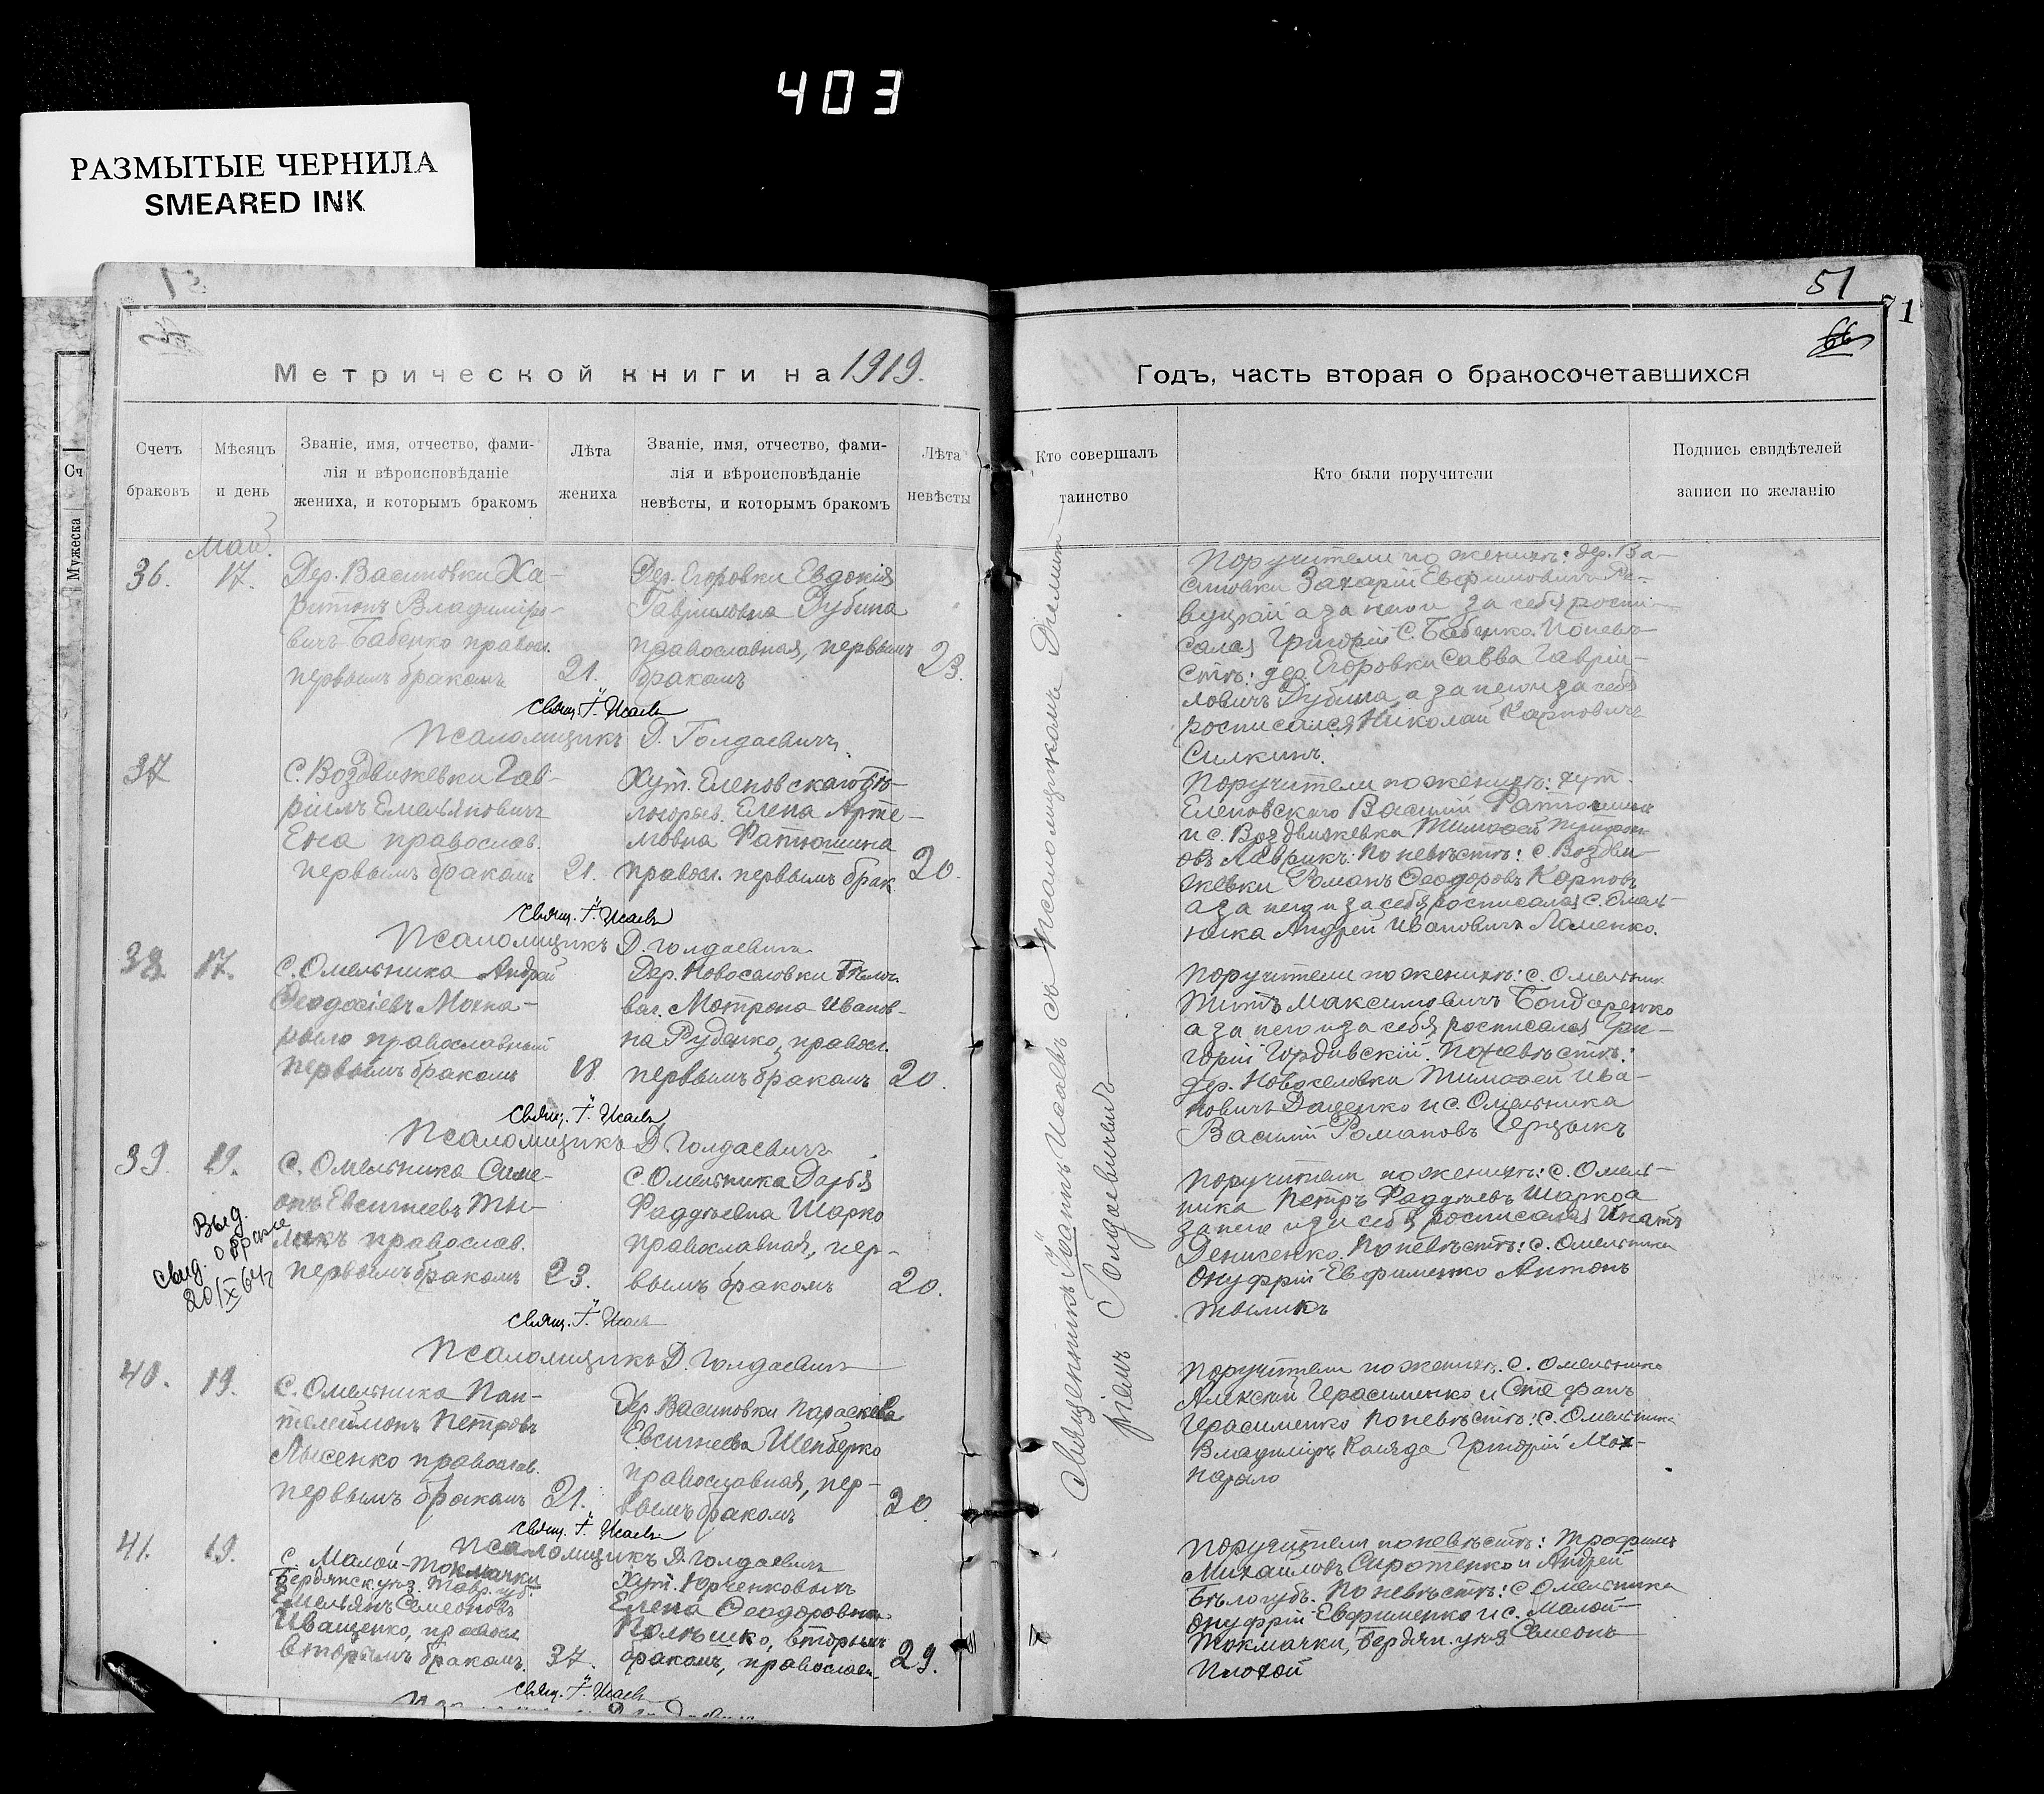 403
РАЗМЫТЫЕ ЧЕРНИЛА
SMEARED INK
51
71
66
Метрической книги на 1919.
Годъ, часть вторая о бракосочетавшихся
Счетъ
браковъ
Мѣсяцъ
и день
Званіе, имя, отчество, фами-
лія и вѣроисповѣданіе
жениха, и которымъ бракомъ
Лѣта
жениха
Званіе, имя, отчество, фами-
лія и вѣроисповѣданіе
невѣсты, и которымъ бракомъ
Лѣта
невѣсты
Кто совершалъ
таинство
Кто были поручители
Подпись свидѣтелей
записи по желанію
Сч
Мужеска
Май.
36.
17.
Дер. Васиновки Ха-
ритонъ Владиміро-
вичъ Бабенко правосл.
первымъ бракомъ
21.
Дер. Егоровки Евдокія
Гавриловна Дубина
православная, первымъ
бракомъ
23.
Поручители по женихѣ: дер. Ва-
синовки Захарій Евфимовичъ
а за него и за себя роспи-
сался Григорій С. Бабенко. По невѣ-
стѣ: дер. Егоровки Савва Гаврии-
ловичъ Дубина, а за него и за себя
росписался Николай Карповичъ
Силкинъ.
Свящ. І. Исаевъ
Псаломщикъ Д. Голдаевичъ
37
С. Воздвижевки Гав-
ріилъ Емельяновичъ
Ена православ.
первымъ бракомъ
21.
Хут. Еленовскаго Бѣ-
логорьев. Елена Арте-
мовна Фатюшина
правосл. первымъ брак.
20.
Поручители по женихѣ: хут.
Еленовскаго Василій
и с. Воздвижевка Тимофей
овъ Лаврикъ. По невѣстѣ: с. Воздви-
жевки Романъ Феодоровъ Карповъ
а за него и за себя росписался с. Омель-
ника Андрей Ивановичъ Ломенко.
Свящ. І. Исаевъ
Псаломщикъ Д. Голдаевичъ
38.
17.
С. Омельника Андрей
Феодосіевъ Мохна-
рыло православный
первымъ бракомъ
18
Дер. Новоселовки
вол. Мотрона Иванов-
на Руденко, правосл.
первымъ бракомъ
20.
Поручители по женихѣ: с. Омельник.
Титъ Максимовичъ Бондаренко
а за него и за себя росписался Гри-
горій Гордивскій. По невѣстѣ:
дер. Новоселовки Тимофей Ива-
новичъ Даценко и с. Омельника
Василій Романовъ Церцыкъ
Свящ. І. Исаевъ
Псаломщикъ Д. Голдаевичъ
39.
19.
С. Омельника Симе-
онъ Евсигнеевъ Ты-
ликъ православ.
первымъ бракомъ
23.
С. Омельника Дарья
Фаддѣевна Шарко
православная, пер-
вымъ бракомъ
20.
Поручители по женихѣ: с. Омель-
ника Петръ Фаддѣевъ Шарко а
за него и за себя росписался Игнатъ
Денисенко. По невѣстѣ: с. Омельника
Онуфрій Евфименко Антонъ
Тыликъ
Выд.
свид. о браке
20/X 64г
Свящ. І. Исаевъ
Псаломщикъ Д. Голдаевичъ
40.
19.
С. Омельника Пан-
телеймонъ Петровъ
Лысенко православ.
первымъ бракомъ
21.
Дер. Васиновки Параскева
Евсигнеева Шенберко
православная, пер-
вымъ бракомъ
20.
Поручители по женихѣ: с. Омельника
Алексій Герасименко и Стефанъ
Герасименко По невѣстѣ: с. Омельника
Владиміръ Коляда Григорій Мох-
нарыло
Свящ. І. Исаевъ
Псаломщикъ Д. Голдаевичъ
41.
19.
С. Малой-Токмачки
Бердянск. уѣз. Тавр. губ.
Емельянъ Семеоновъ
Иващенко, правосл.
вторымъ бракомъ.
37.
Хут. Юрченковыхъ
Елена Феодоровна
Полѣшко, вторымъ
бракомъ, православн.
29.
Поручители по невѣстѣ: Трофимъ
Михайловъ Сиротенко и Андрей
Бѣлогубъ. По невѣстѣ: с. Омельника
Онуфрій Евфименко и с. Малой-
Токмачки, Бердян. уѣз. Семеонъ
Плохой
Свящ. І. Исаевъ
Священникъ Іоаннъ Исаевъ съ псаломщикомъ Димит-
ріемъ Голдаевичемъ